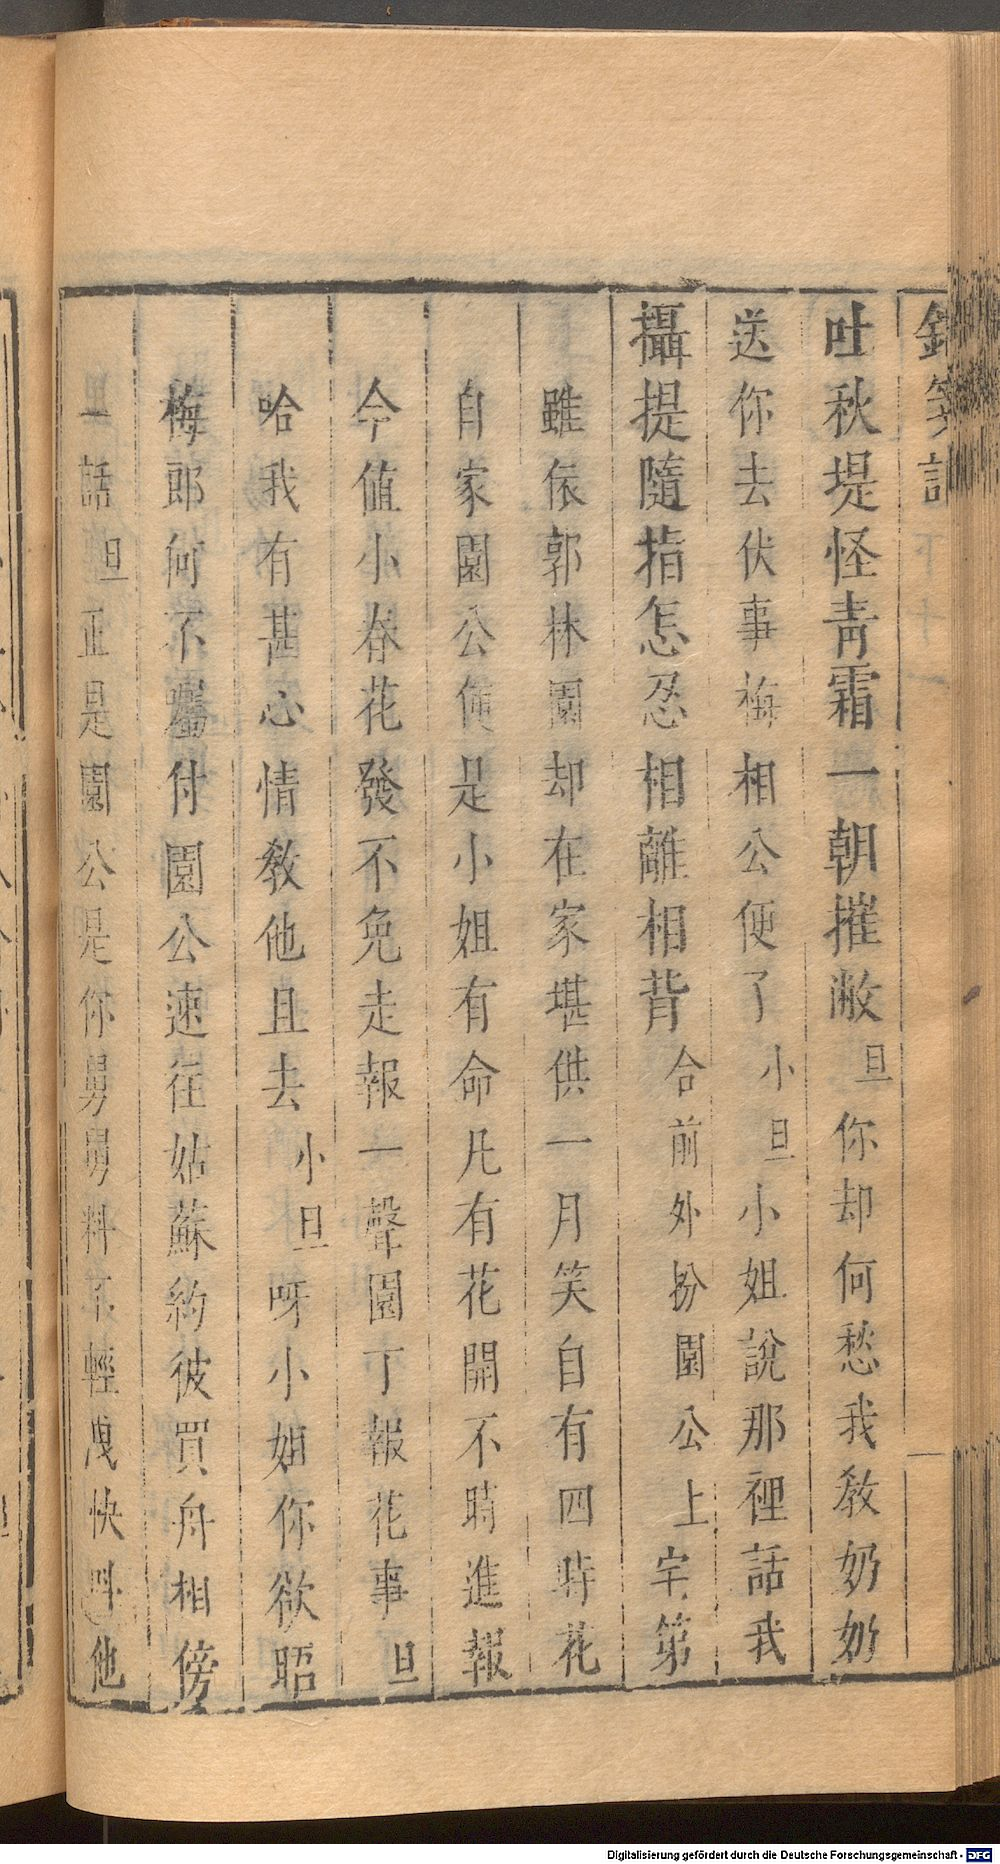 記
吐秋堤怪靑霜一朝摧敝旦你却何愁我敎奶奶
送你去伏事梅相公便了小旦小姐說那裡話我
攝提隨指怎忍相離相背合前外扮園公上宰第
雖依郭林園却在家堪供一月笑自有四時花
自家園公便是小姐有命凡有花開不時進報
今值小春花發不免走報一聲園丁報花事旦
哈我有甚心情敎他且去小旦呀小姐你欲晤
梅郎何不囑付園公速往姑蘇約彼買舟相傍
一話旦正是園公是你舅舅料不輕洩快叫他
Digitalisierung gefördert durch die Deutsche Forschungsgemeinschaft - DFG